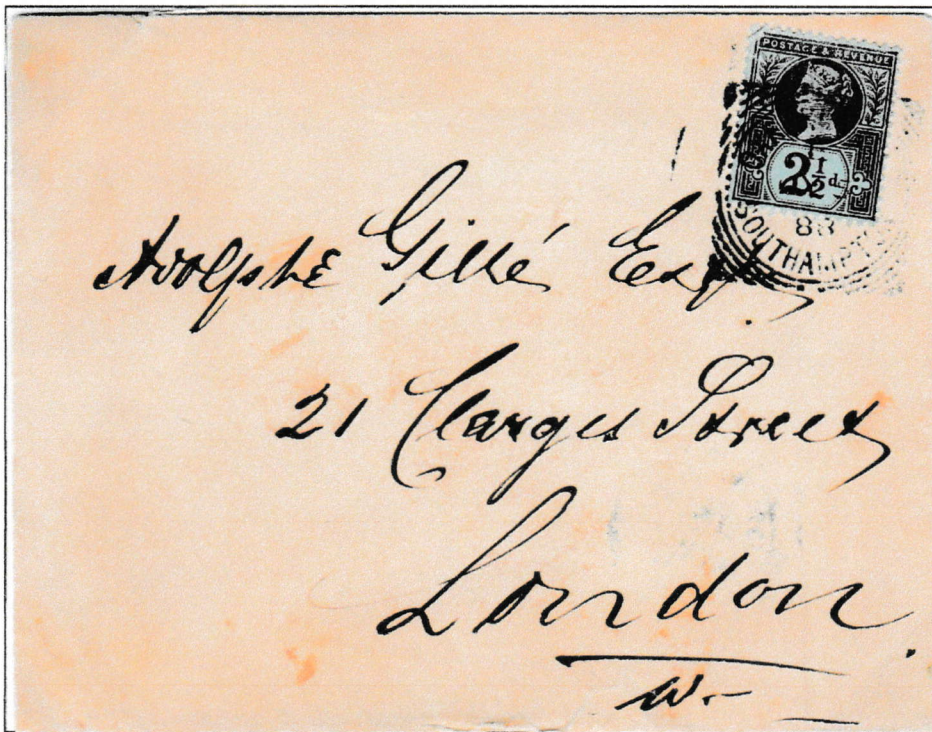 POSTAGE & REVENUE
2½d.
88
SOUTHAMPT
Adolphe Gillé Esq.
21 Clarges Street
London.
W.